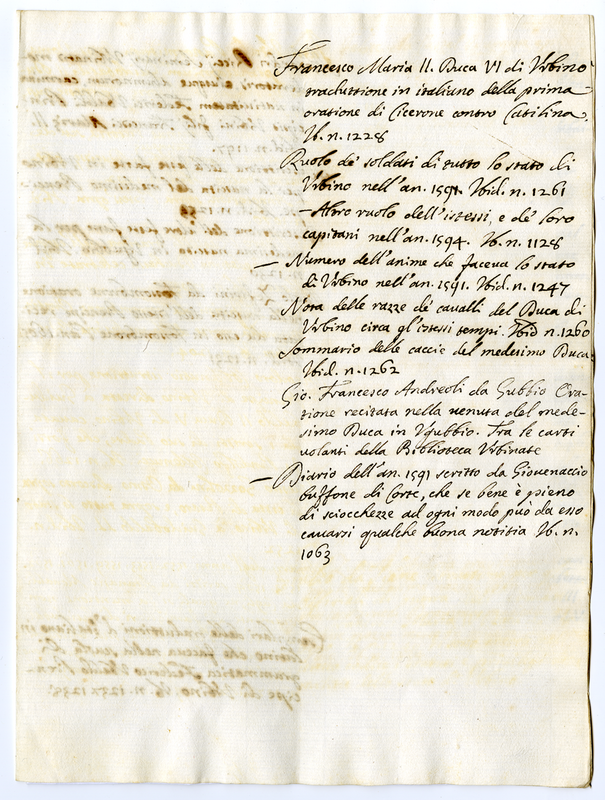 Francesco Maria II. Duca VI di Vrbino
traduttione in italiano della prima
oratione di Cicerone contro Catilina.
Ib. n. 1228
Ruolo de' soldati di tutto lo stato di
Vrbino nell'an. 1591. Ibid. n. 1261
– Altro ruolo dell'istessi, e de' loro
capitani nell'an. 1594. Ib. n. 1128
— Numero dell'anime che faceva lo stato
di Vrbino nell'an. 1591. Ibid. n. 1247
Nota delle razze de' cavalli del Duca di
Vrbino circa gl'istessi tempi. Ibid n. 1260
Sommario delle caccie del medesimo Duca.
Ibid. n. 1262
Gio. Francesco Andreoli da Gubbio Ora-
tione recitata nella venuta del mede-
simo Duca in Vgubbio. Tra le carti
volanti della Biblioteca Vrbinate
— Diario dell'an. 1591 scritto da Giovenaccio
buffone di Corte, che se bene è pieno
di sciocchezze ad ogni modo può da esso
cavarsi qualche buona notitia Ib. n.
1063